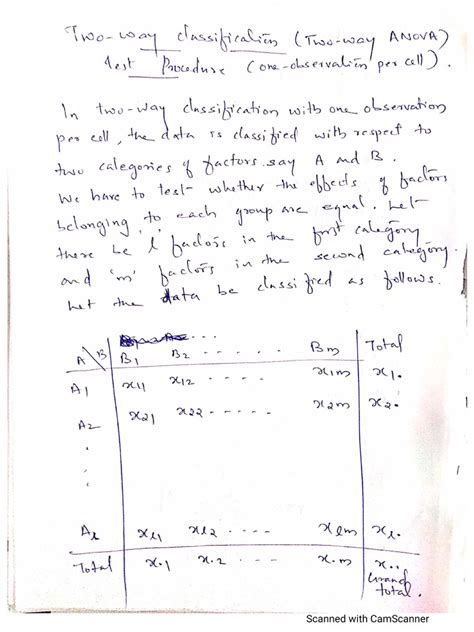 Two-way classification (Two-way ANOVA)
Test Procedure (one-observation per cell).
In two-way classification with one observation
per cell, the data is classified with respect to
two categories of factors say A and B.
We have to test whether the effects of factors
belonging to each group are equal. Let
there be l factors in the first category
and 'm' factors in the second category.
Let the data be classified as follows.
A \ B B1 B2 ..... Bm Total
A1 x11 x12 ..... x1m x1.
A2 x21 x22 ..... x2m x2.
Al xl1 xl2 .... xlm xl.
Total x.1 x.2 .... x.m x..
Grand
total.
Scanned with CamScanner